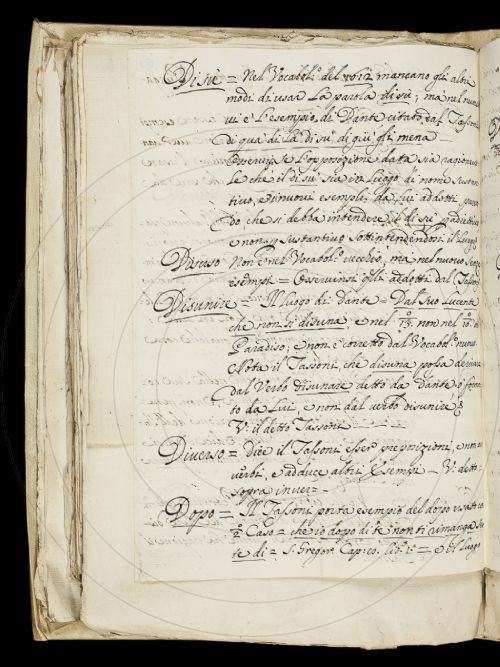 Disù = Nel Vocabol.º del 1612 mancano gli altri
modi di usar la parola di sù; mà nel nuovo
vi è l'esempio di Dante citato dal Tassoni
di quà di là di sù di giù gli mena –
Osservisi se l'opposizione data sia ragionevo
le che il di sù sia in luogo di nome sustan
tivo, e i nuovi esempli da lui addotti
do che si debba intendere il di sù p adiettivo
e non p sustantivo sottintendendosi il luogo
Disceso Non è nel Vocabol.º vecchio, ma nel nuovo senza
esempi = Osservinsi gli addotti dal Tassoni
Disunire = Il luogo di Dante = Dal suo lucente
che non si disuna, è nel 13.º non nel 10.º del
Paradiso, e non è corretto dal Vocabol.º nuovo.
Nota il Tassoni, che disuna possa derivare
dal Verbo disunare detto da Dante o forma
to da Lui, e non dal verbo disunire
V: il detto Tassoni
Diverso = dice il Tassoni esser preposizioni, e non
verbi, e adduce altri Esempi – V: detto
sopra inver= –
Dopo = Il Tassoni porta esempio del dopo usato co
2.º Caso = che io dopo di te non ti rimanga
te di = S: Gregor: Cap: co. lib: 1.º = e il luogo